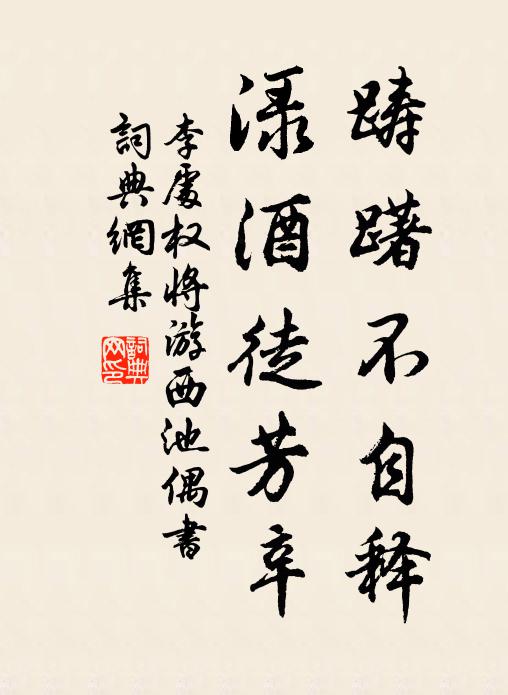 踌躇不自释
渌酒徒芳辛
李處权将游西池偶書
詞典網集
詞典网印